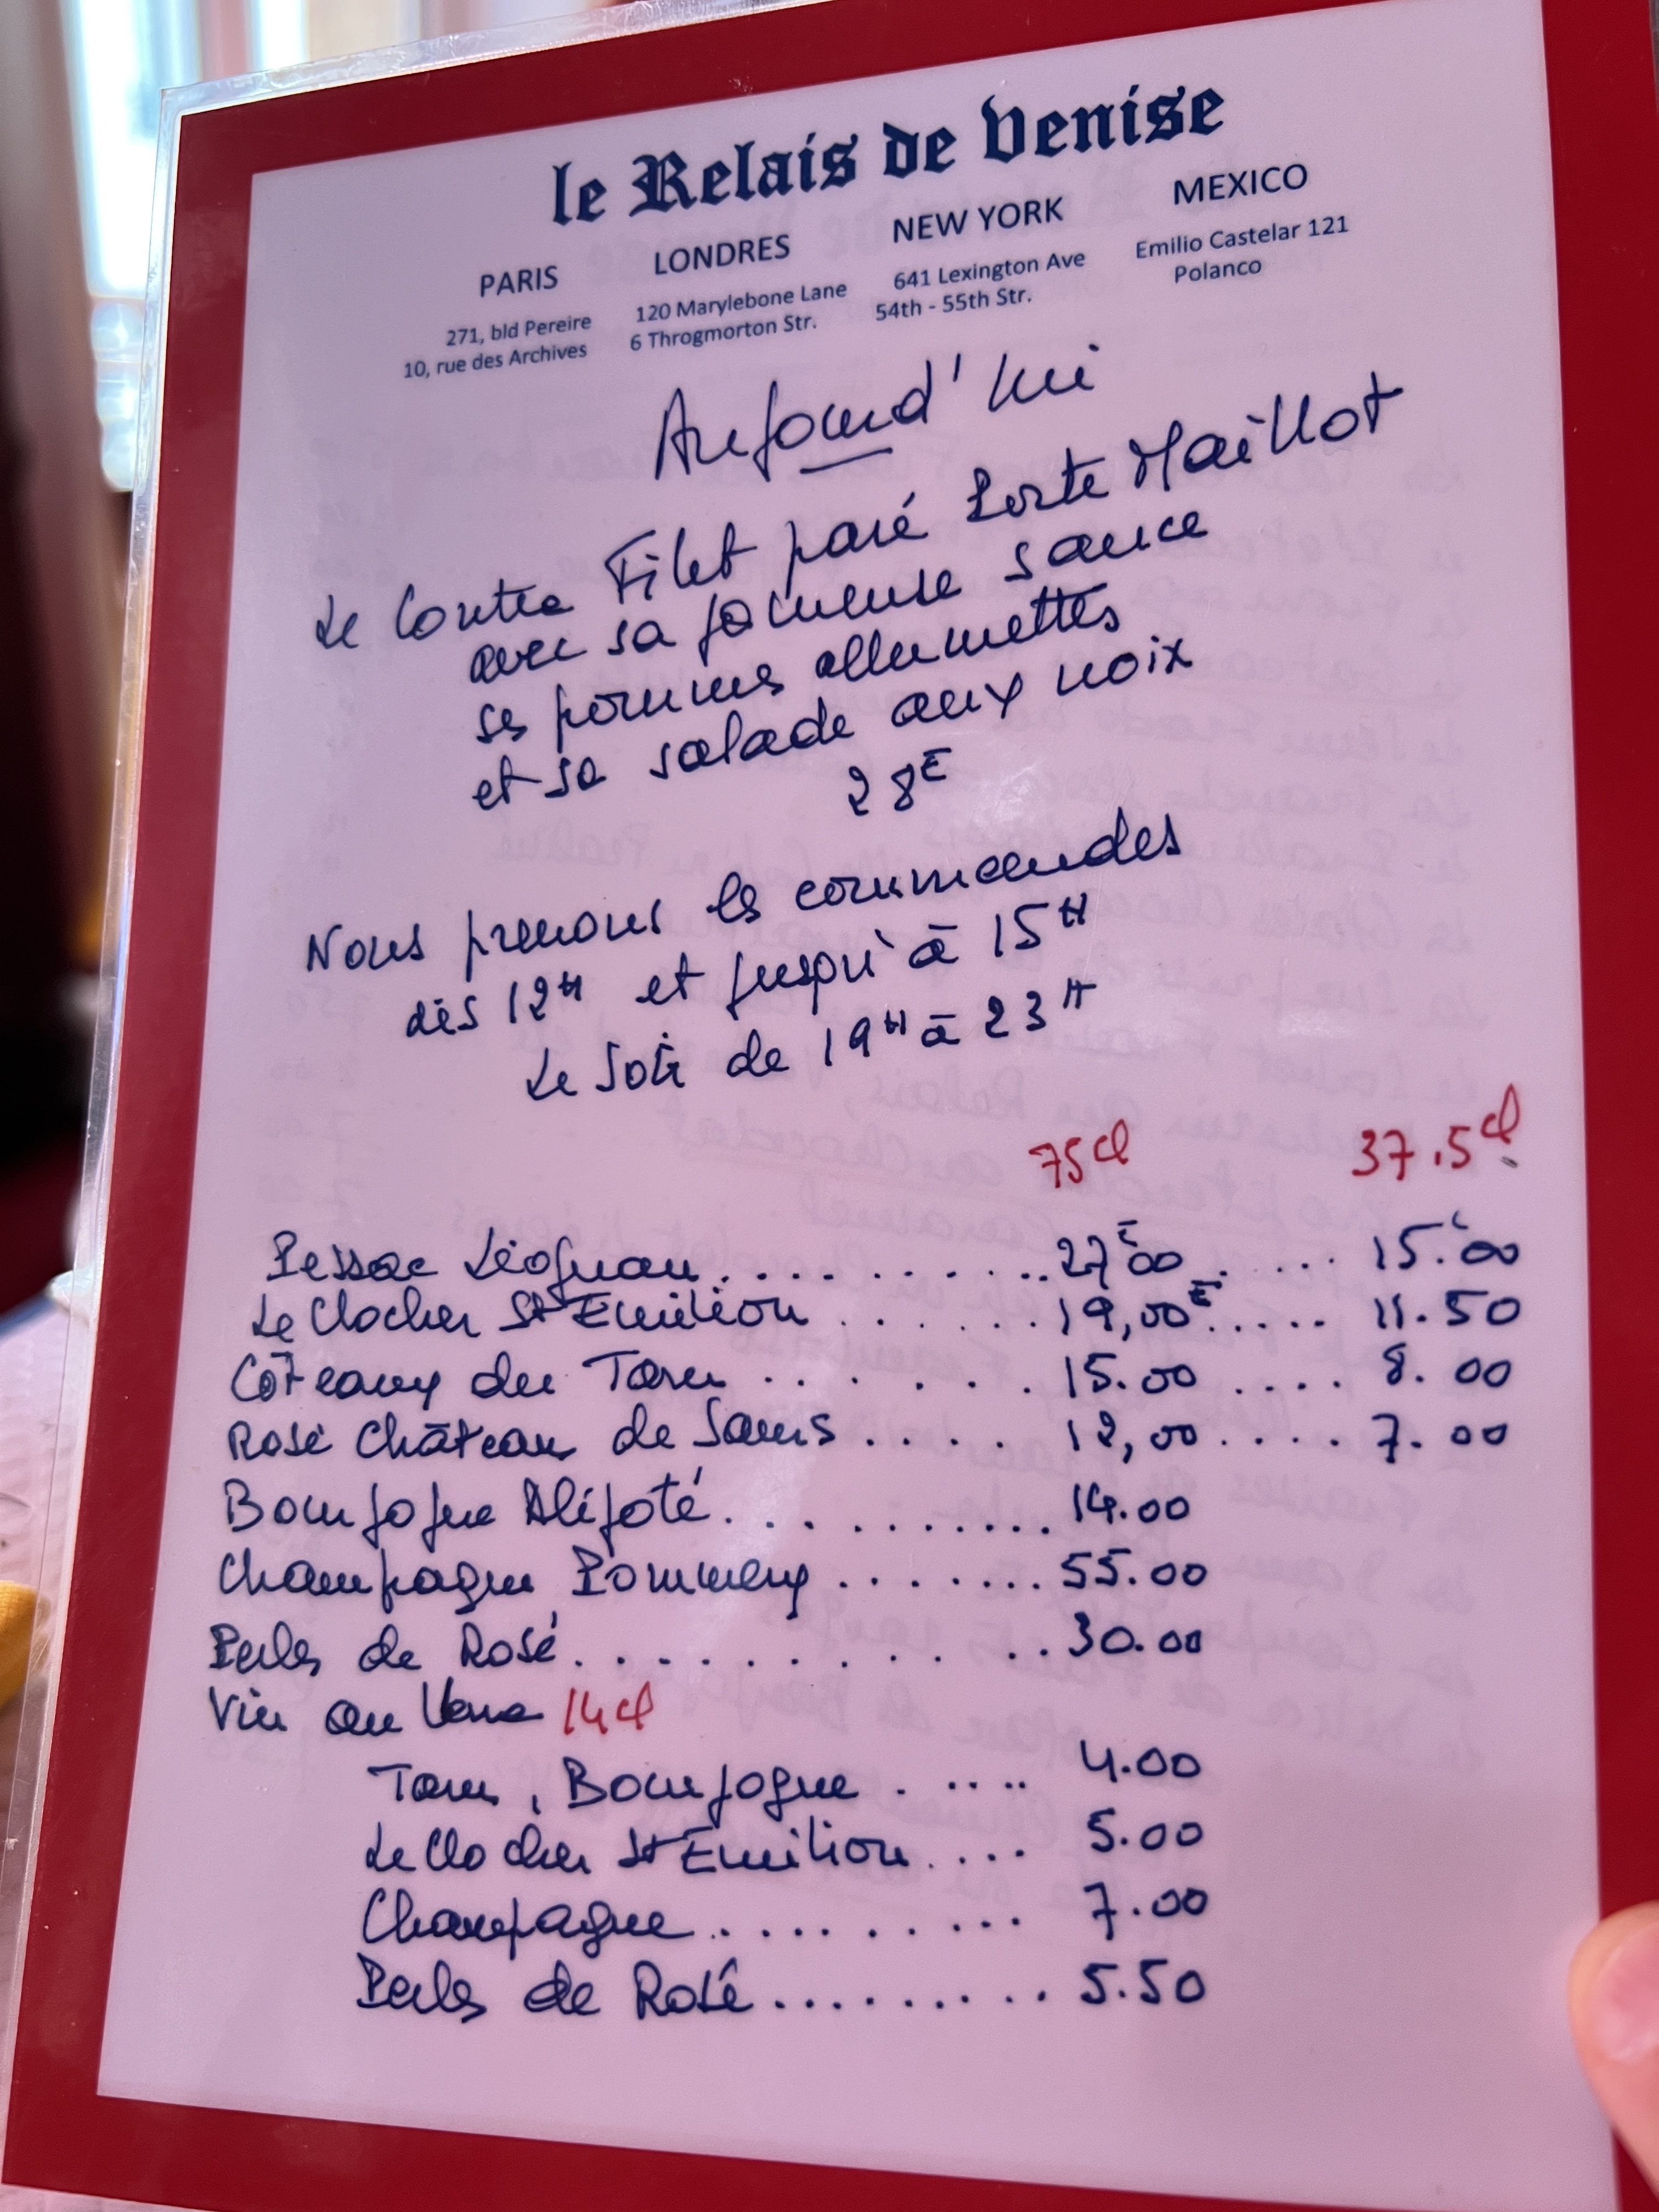 le Relais de Venise
PARIS LONDRES NEW YORK MEXICO
271, bld Pereire 120 Marylebone Lane 641 Lexington Ave Emilio Castelar 121
10, rue des Archives 6 Throgmorton Str. 54th - 55th Str. Polanco
Aujourd'hui
Le Contre Filet paré Porte Maillot
avec sa fameuse sauce
ses pommes allumettes
et sa salade aux noix
28€
Nous prenons les commandes
dès 12H et jusqu'à 15H
Le Soir de 19H à 23H
75cl 37.5cl
Pessac Léognan............27€00.....15.€00
Le Clocher St Emilion.......19,00€.....11.50
Côteaux du Tarn.......15.00....8.00
Rosé Château de Saurs.....12,00....7.00
Bourgogne Aligoté...........14.00
Champagne Pommery.......55.00
Perles de Rosé...........30.00
Vin au Verre 14cl
Tarn, Bourgogne.....4.00
Le Clocher St Emilion....5.00
Champagne..........7.00
Perles de Rosé..........5.50